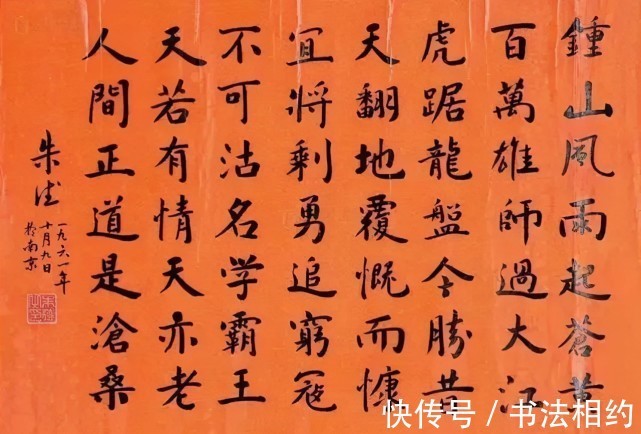 鍾山風雨起蒼黄
百萬雄師過大江
虎踞龍盤今勝昔
天翻地覆慨而慷
宜將剩勇追窮寇
不可沽名学霸王
天若有情天亦老
人間正道是滄桑
朱德
一九六一年
十月九日
於南京
快传号 / 书法相约